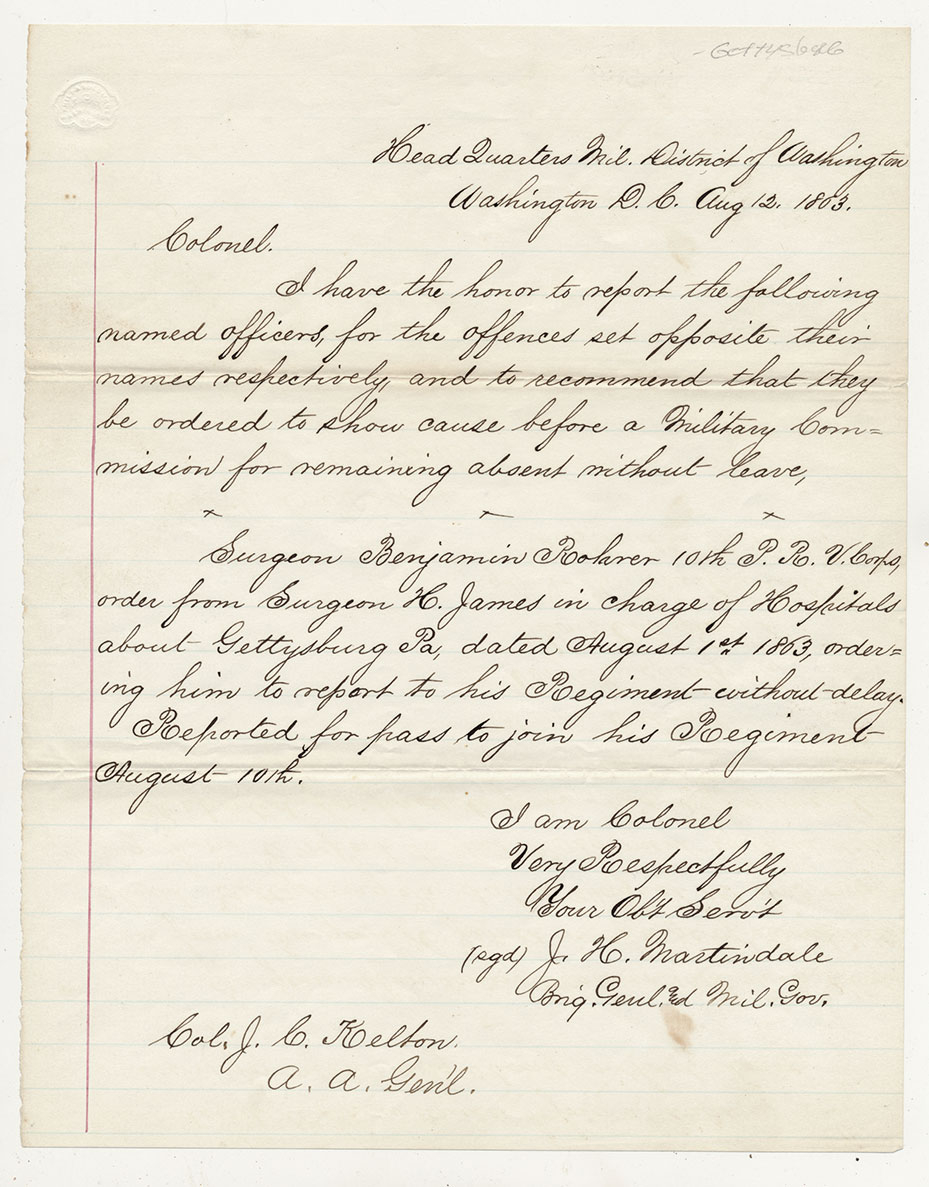 - Gettysburg
Head Quarters Mil. District of Washington
Washington D. C. Aug 12. 1863.
Colonel.
I have the honor to report the following
named officers, for the offences set opposite their
names respectively, and to recommend that they
be ordered to show cause before a Military Com=
mission for remaining absent without leave,
x x x
Surgeon Benjamin Rohrer 10th P. R. V. Corps,
order from Surgeon H. James in charge of Hospitals
about Gettysburg Pa, dated August 1st 1863, order=
ing him to report to his Regiment without delay.
Reported for pass to join his Regiment
August 10th.
I am Colonel
Very Respectfully
Your Obt Serv't
(sgd) J. H. Martindale
Brig. Genl. and Mil. Gov.
Col. J. C. Kelton.
A. A. Gen'l.